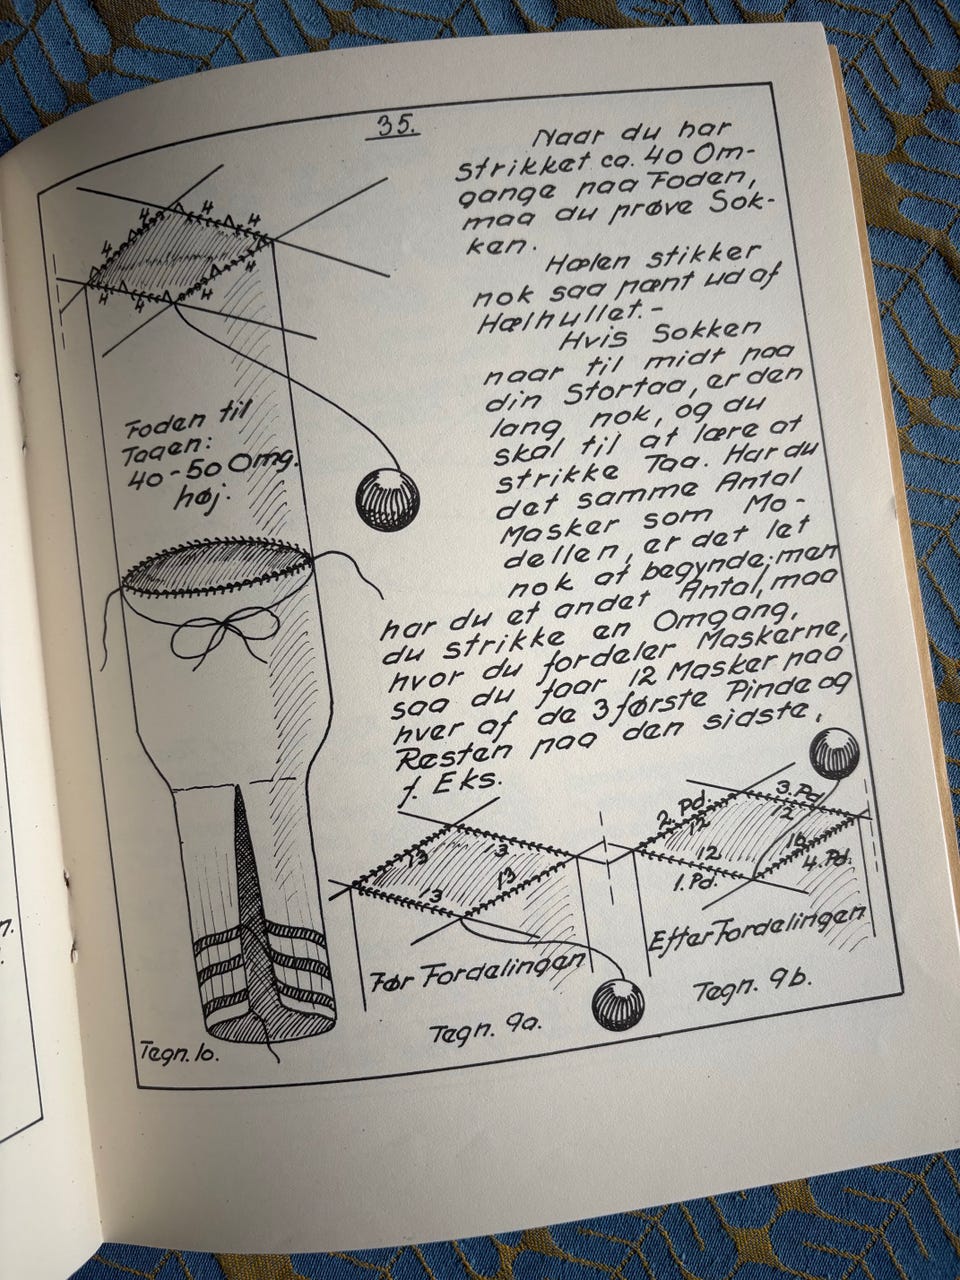 35.
Naar du har
strikket ca. 40 Om-
gange paa Foden,
maa du prøve Sok-
ken.
Hælen stikker
nok saa pænt ud af
Hælhullet.-
Hvis Sokken
naar til midt paa
din Stortaa, er den
lang nok, og du
skal til at lære at
strikke Taa. Har du
det samme Antal
Masker som Mo-
dellen, er det let
nok at begynde; men
har du et andet Antal, maa
du strikke en Omgang,
hvor du fordeler Maskerne,
saa du faar 12 Masker paa
hver af de 3 første Pinde og
Resten paa den sidste,
f. Eks.
4 4
4 4
4 4
4 4
Foden til
Taaen:
40-50 Omg.
høj.
Tegn. 10.
13 3
13 13
Før Fordelingen
Tegn. 9a.
2. Pd. 3. Pd.
12 12
12 16
1. Pd. 4. Pd.
Efter Fordelingen
Tegn. 9b.